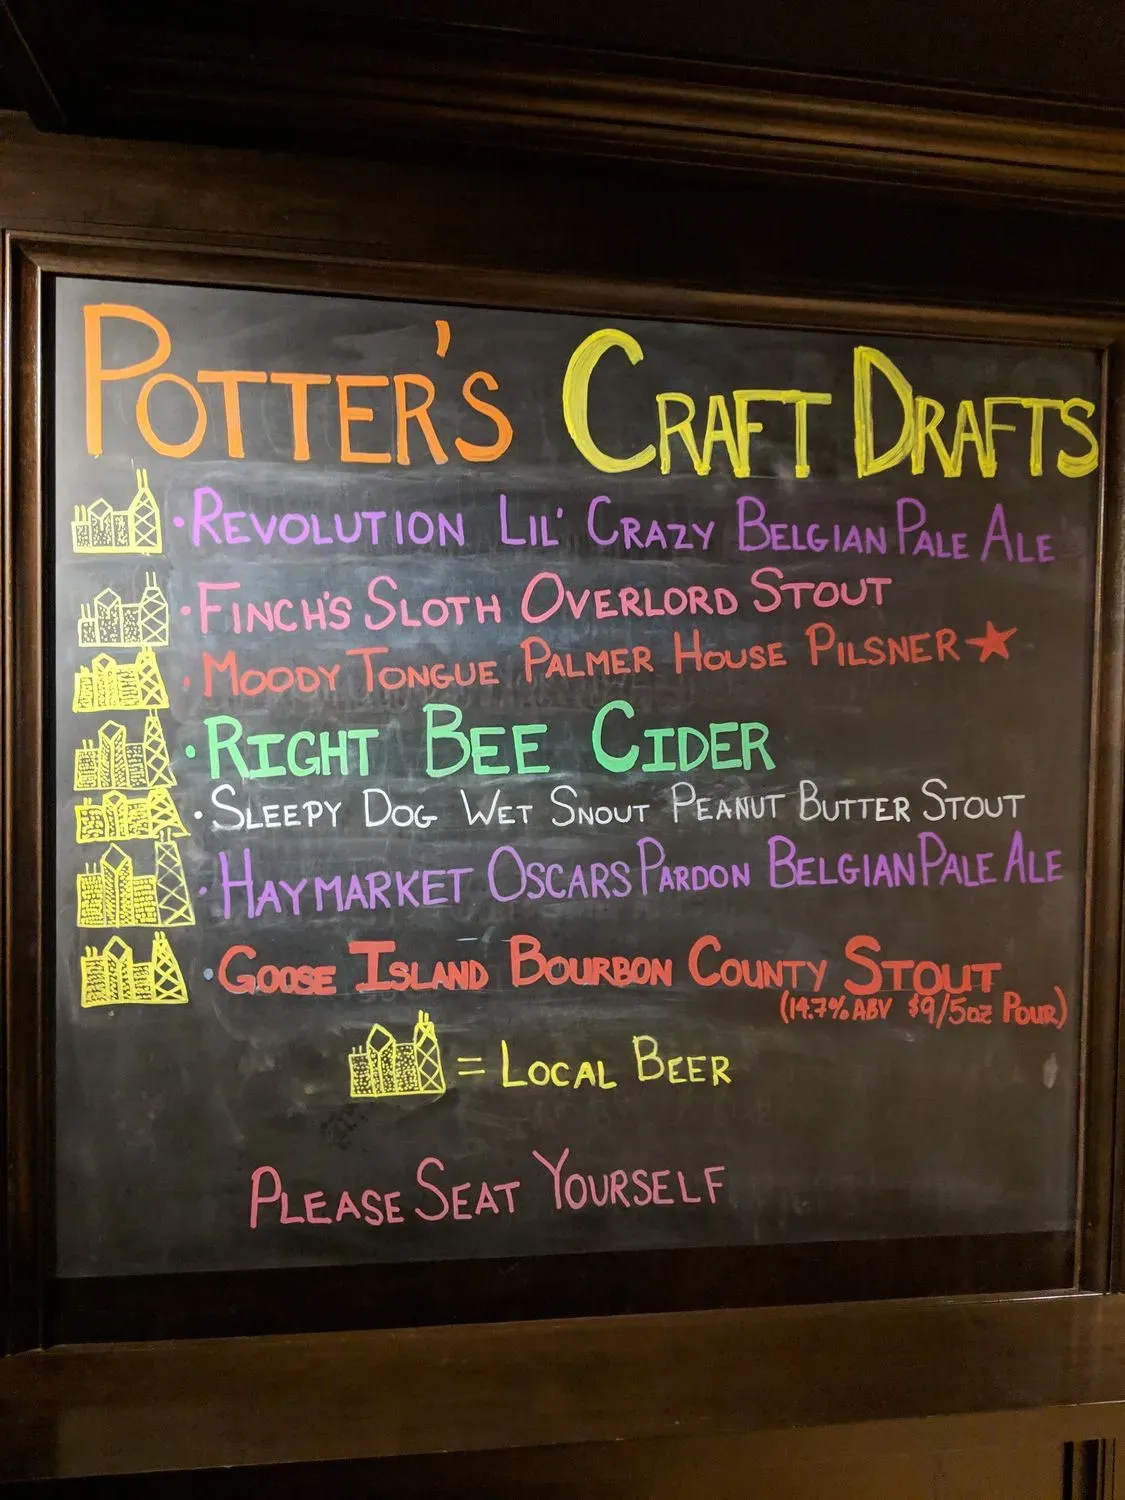 POTTER'S CRAFT DRAFTS
• REVOLUTION LIL' CRAZY BELGIAN PALE ALE
• FINCH'S SLOTH OVERLORD STOUT
• MOODY TONGUE PALMER HOUSE PILSNER ★
• RIGHT BEE CIDER
• SLEEPY DOG WET SNOUT PEANUT BUTTER STOUT
• HAYMARKET OSCARS PARDON BELGIAN PALE ALE
• GOOSE ISLAND BOURBON COUNTY STOUT
(14.7% ABV $9/5oz POUR)
= LOCAL BEER
PLEASE SEAT YOURSELF